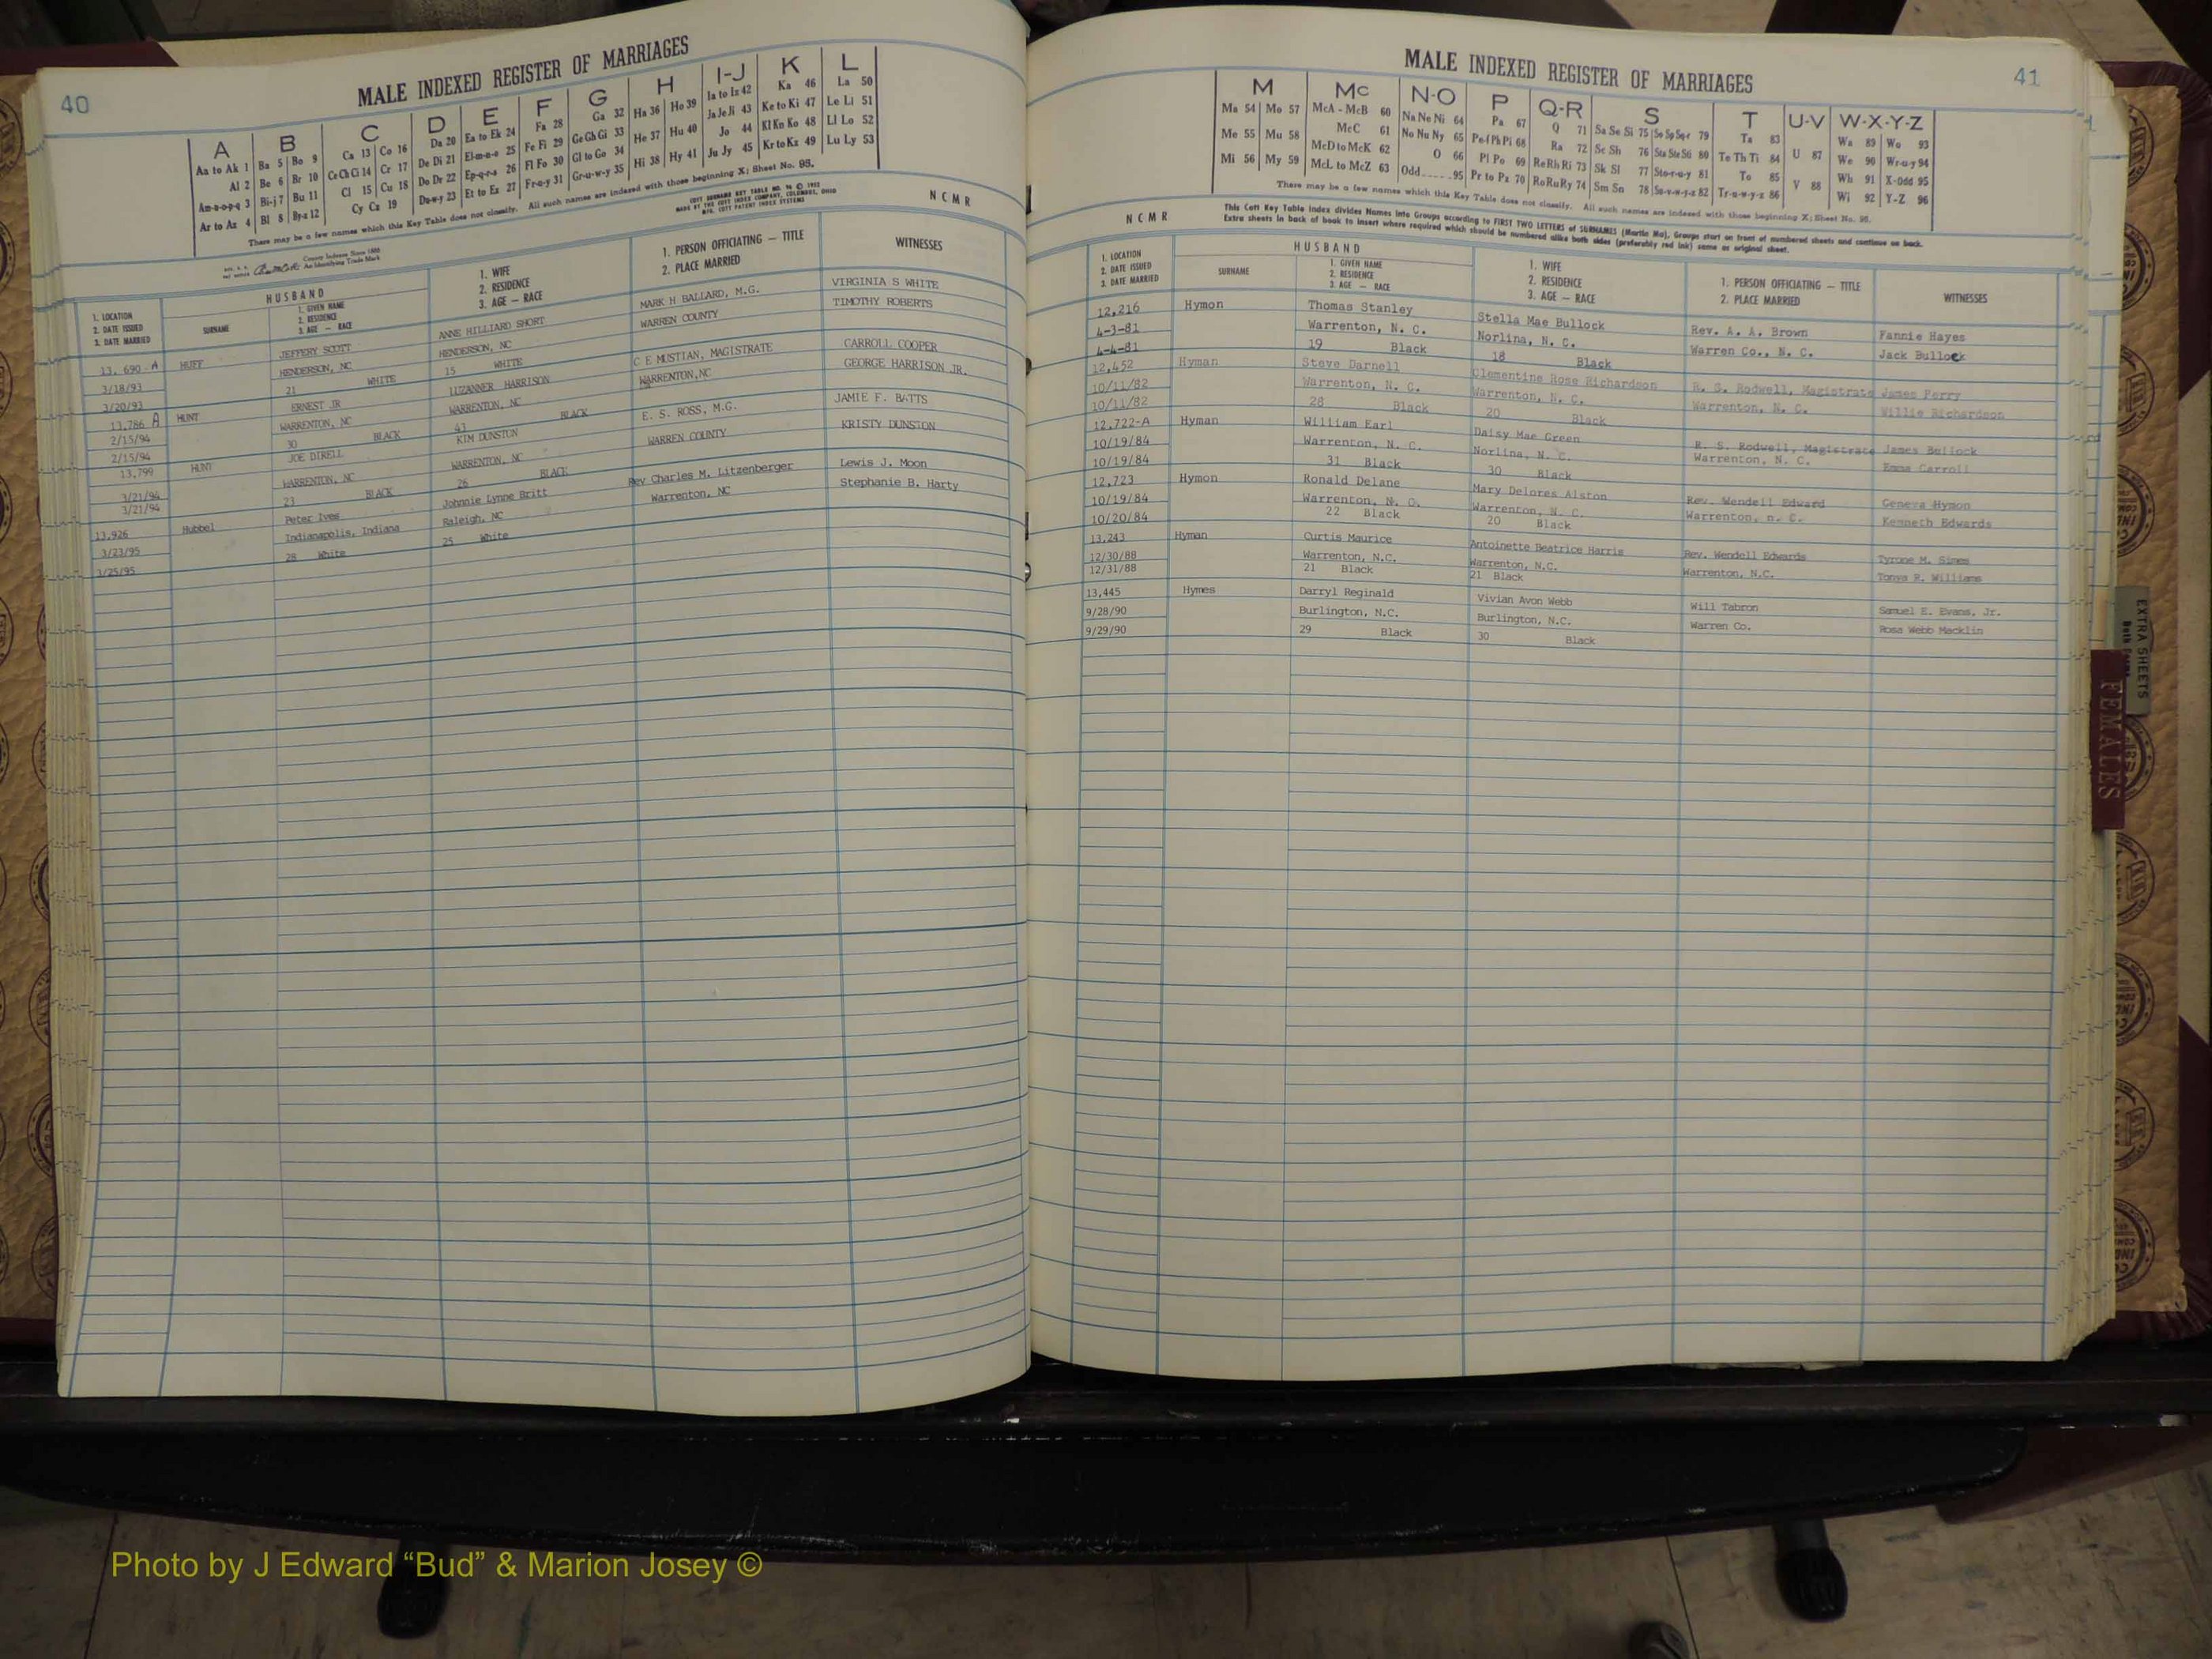 40
MALE INDEXED REGISTER OF MARRIAGES
A B C D E F G H I-J K L
Aa to Ak 1 Ba 5 Bo 9 Ca 13 Co 16 Da 20 Ea to Ek 24 Fa 28 Ga 32 Ha 36 Ho 39 Ia to Iz 42 Ka 46 La 50
Al 2 Be 6 Br 10 Ce Ch Ci 14 Cr 17 De Di 21 El-m-n-o 25 Fe Fi 29 Ge Gh Gi 33 He 37 Hu 40 Ja Je Ji 43 Ke to Ki 47 Le Li 51
Am-n-o-p-q 3 Bi-j 7 Bu 11 Cl 15 Cu 18 Do Dr 22 Ep-q-r-s 26 Fl Fo 30 Gl to Go 34 Hi 38 Hy 41 Jo 44 Kl Kn Ko 48 Ll Lo 52
Ar to Az 4 Bl 8 By-z 12 Cy Cz 19 Du-w-y 23 Et to Ez 27 Fr-u-y 31 Gr-u-w-y 35 Ju Jy 45 Kr to Kz 49 Lu Ly 53
There may be a few names which this Key Table does not classify. All such names are indexed with those beginning X; Sheet No. 95.
County Indexes Since 1888
An Identifying Trade Mark
N C M R
HUSBAND
1. LOCATION
2. DATE ISSUED
3. DATE MARRIED
SURNAME
1. GIVEN NAME
2. RESIDENCE
3. AGE — RACE
1. WIFE
2. RESIDENCE
3. AGE — RACE
1. PERSON OFFICIATING — TITLE
2. PLACE MARRIED
WITNESSES
13, 690-A HUFF JEFFERY SCOTT ANNE HILLIARD SHORT MARK H BALLARD, M.G. VIRGINIA S WHITE
3/18/93 HENDERSON, NC HENDERSON, NC WARREN COUNTY TIMOTHY ROBERTS
3/20/93 21 WHITE 15 WHITE
13,786 A HUNT ERNEST JR LUZANNER HARRISON C E MUSTIAN, MAGISTRATE CARROLL COOPER
2/15/94 WARRENTON, NC WARRENTON, NC WARRENTON, NC GEORGE HARRISON JR.
2/15/94 30 BLACK 43 BLACK
13,799 HUNT JOE DIRELL KIM DUNSTON E. S. ROSS, M.G. JAMIE F. BATTS
3/21/94 WARRENTON, NC WARRENTON, NC WARREN COUNTY KRISTY DUNSTON
3/21/94 23 BLACK 26 BLACK
13,926 Hubbel Peter Ives Johnnie Lynne Britt Rev Charles M. Litzenberger Lewis J. Moon
3/23/95 Indianapolis, Indiana Raleigh, NC Warrenton, NC Stephanie B. Harty
3/25/95 28 White 25 White
41
MALE INDEXED REGISTER OF MARRIAGES
M Mc N-O P Q-R S T U-V W-X-Y-Z
Ma 54 Mo 57 McA - McB 60 Na Ne Ni 64 Pa 67 Q 71 Sa Se Si 75 So Sp Sq-r 79 Ta 83 U 87 Wa 89 Wo 93
Me 55 Mu 58 McC 61 No Nu Ny 65 Pe-f Ph Pi 68 Ra 72 Sc Sh 76 Sta Ste Sti 80 Te Th Ti 84 V 88 We 90 Wr-u-y 94
Mi 56 My 59 McD to McK 62 O 66 Pl Po 69 Re Rh Ri 73 Sk Sl 77 Sto-r-u-y 81 To 85 Wh 91 X-Odd 95
McL to McZ 63 Odd 95 Pr to Pz 70 Ro Ru Ry 74 Sm Sn 78 Su-v-w-y-z 82 Tr-u-w-y-z 86 Wi 92 Y-Z 96
There may be a few names which this Key Table does not classify. All such names are indexed with those beginning X; Sheet No. 95.
This Cott Key Table Index divides Names into Groups according to FIRST TWO LETTERS of SURNAMES (Martin Ma), Groups start on front of numbered sheets and continue on back.
Extra sheets in back of book to insert where required which should be numbered alike both sides (preferably red ink) same as original sheet.
N C M R
HUSBAND
1. LOCATION
2. DATE ISSUED
3. DATE MARRIED
SURNAME
1. GIVEN NAME
2. RESIDENCE
3. AGE — RACE
1. WIFE
2. RESIDENCE
3. AGE — RACE
1. PERSON OFFICIATING — TITLE
2. PLACE MARRIED
WITNESSES
12,216 Hymon Thomas Stanley Stella Mae Bullock Rev. A. A. Brown Fannie Hayes
4-3-81 Warrenton, N. C. Norlina, N. C. Warren Co., N. C. Jack Bullock
4-4-81 19 Black 18 Black
12,452 Hyman Steve Darnell Clementine Rose Richardson R. S. Rodwell, Magistrate James Perry
10/11/82 Warrenton, N. C. Warrenton, N. C. Warrenton, N. C. Willie Richardson
10/11/82 28 Black 20 Black
12,722-A Hyman William Earl Daisy Mae Green R. S. Rodwell, Magistrate James Bullock
10/19/84 Warrenton, N. C. Norlina, N. C. Warrenton, N. C. Emma Carroll
10/19/84 31 Black 30 Black
12,723 Hymon Ronald Delane Mary Delores Alston Rev. Wendell Edward Geneva Hymon
10/19/84 Warrenton, N. C. Warrenton, N. C. Warrenton, n. C. Kenneth Edwards
10/20/84 22 Black 20 Black
13,243 Hyman Curtis Maurice Antoinette Beatrice Harris Rev. Wendell Edwards Tyrone M. Simms
12/30/88 Warrenton, N.C. Warrenton, N.C. Warrenton, N.C. Tonya R. Williams
12/31/88 21 Black 21 Black
13,445 Hymes Darryl Reginald Vivian Avon Webb Will Tabron Samuel E. Evans, Jr.
9/28/90 Burlington, N.C. Burlington, N.C. Warren Co. Rosa Webb Macklin
9/29/90 29 Black 30 Black
EXTRA SHEETS
FEMALES
Photo by J Edward “Bud” & Marion Josey ©